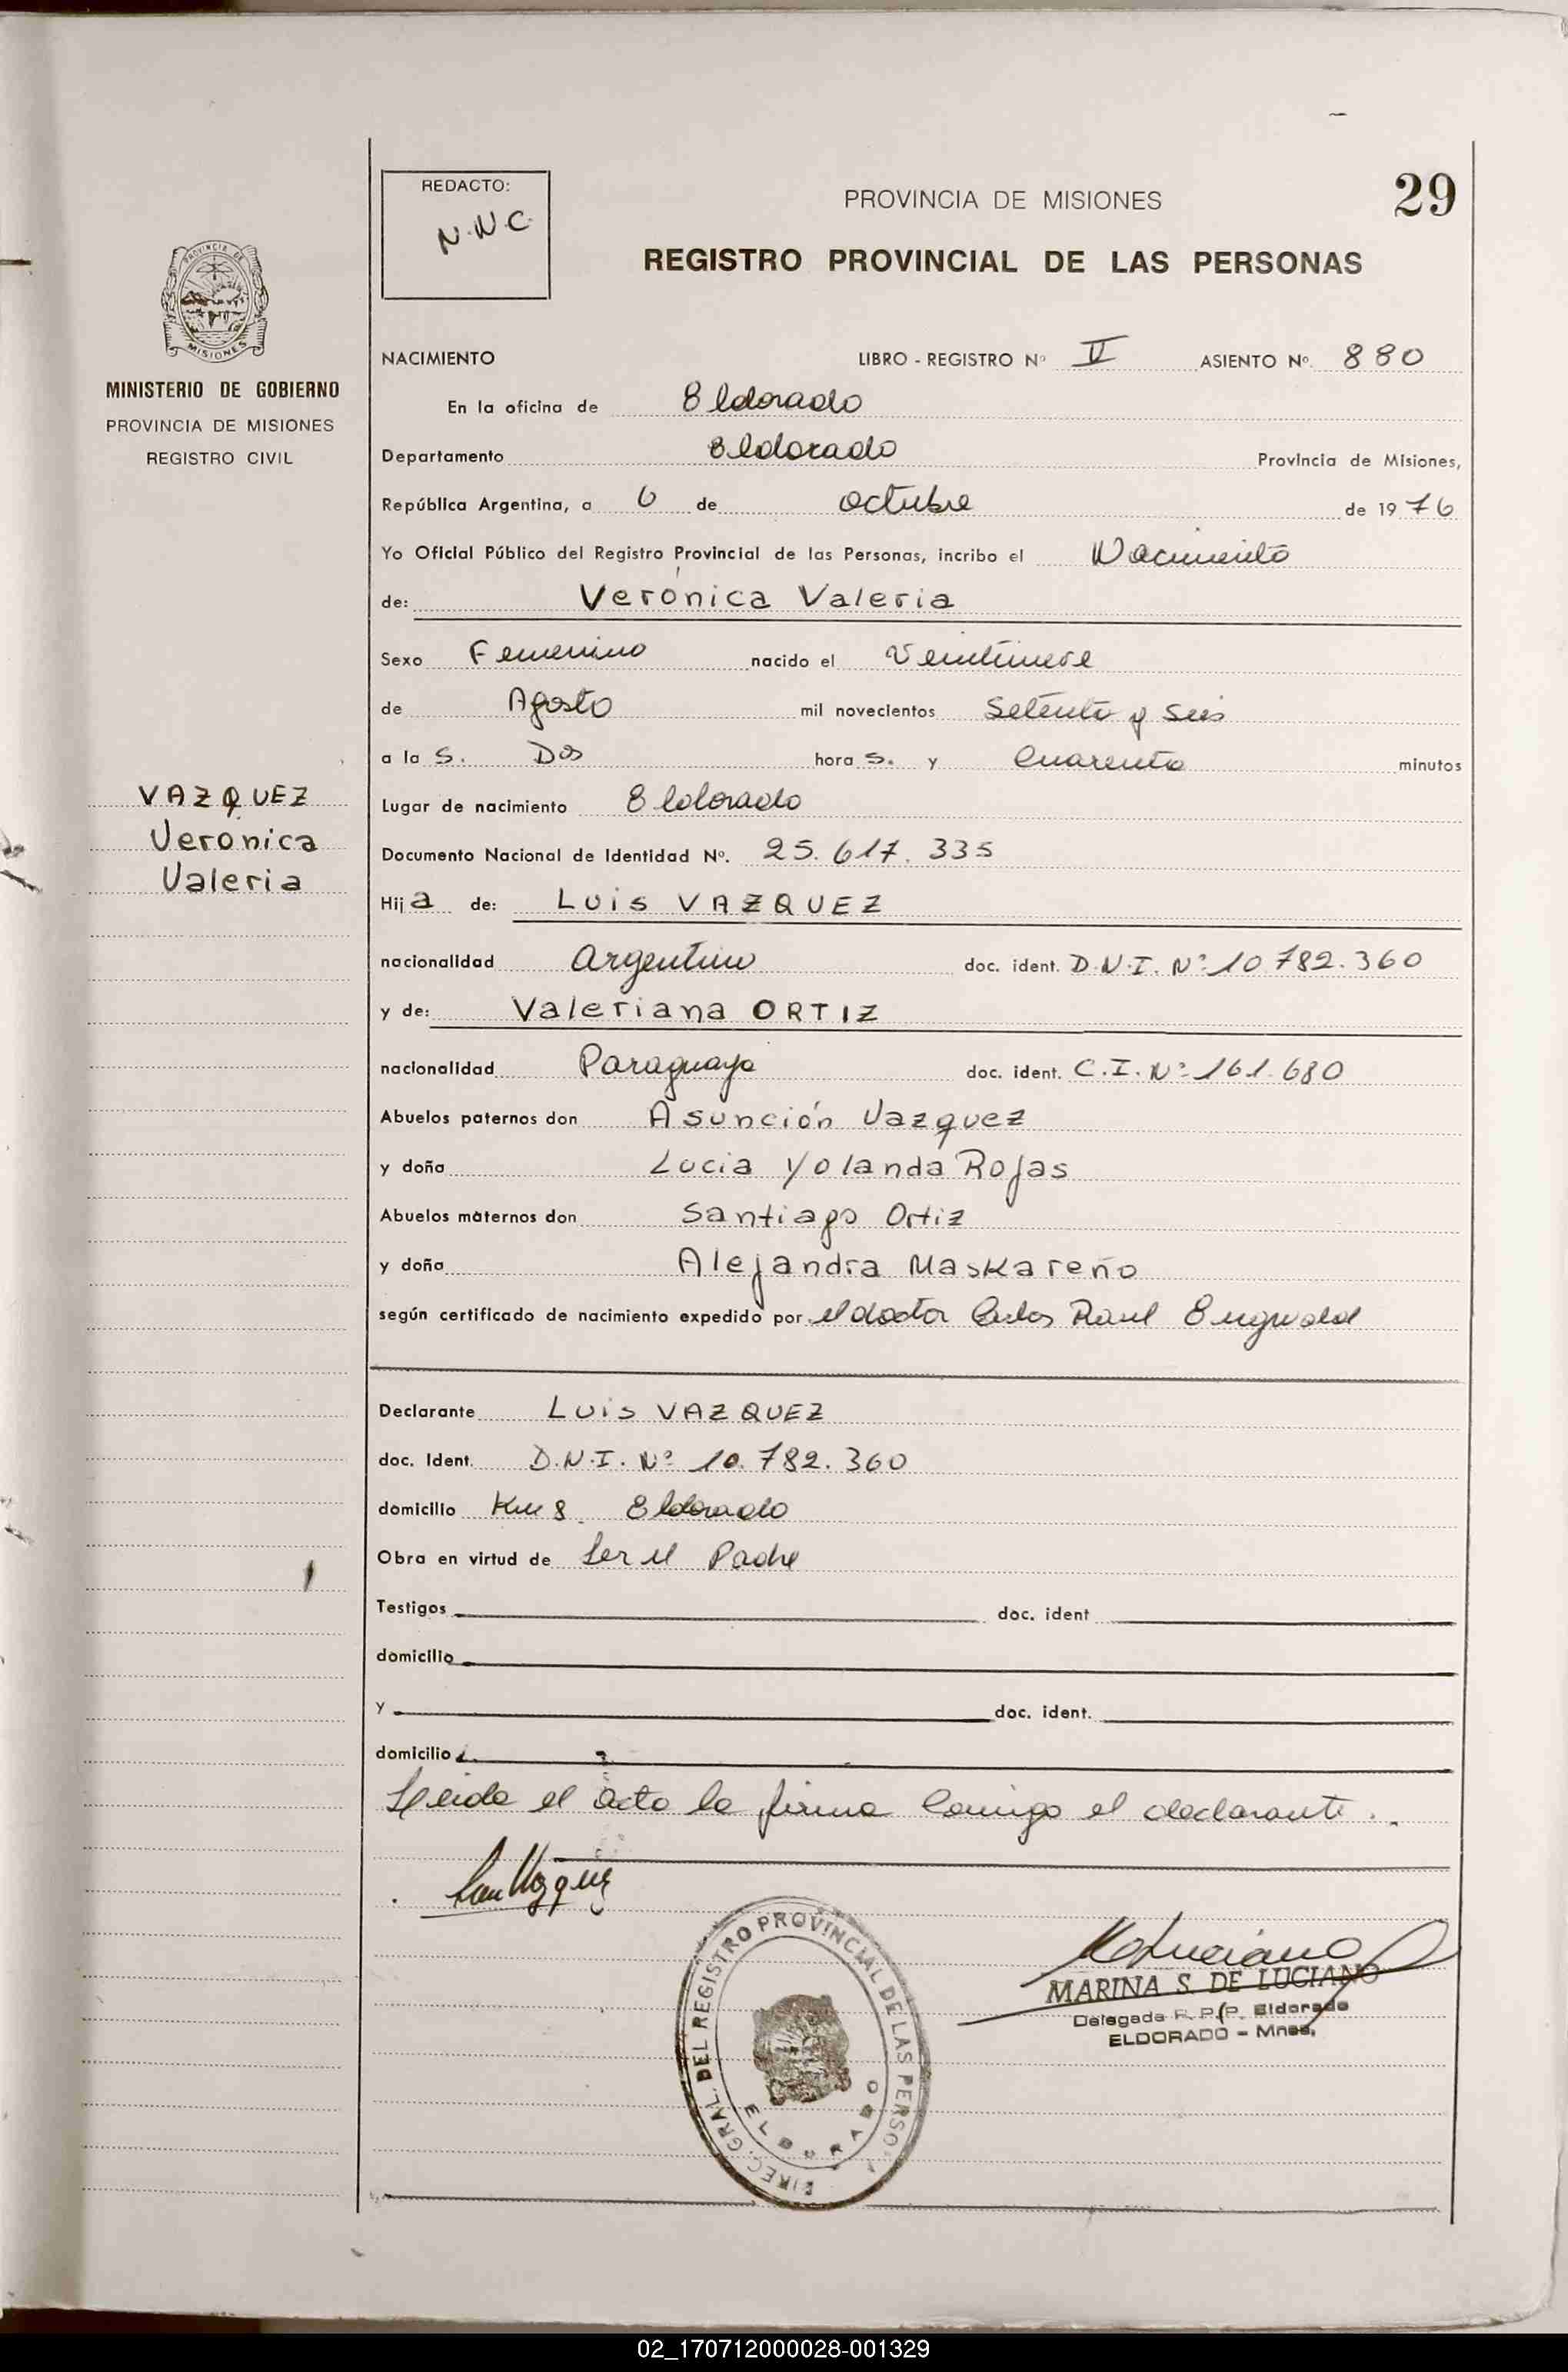 29
REDACTO:
N.N.C.
PROVINCIA DE MISIONES
REGISTRO PROVINCIAL DE LAS PERSONAS
PROVINCIA DE
MISIONES
MINISTERIO DE GOBIERNO
PROVINCIA DE MISIONES
REGISTRO CIVIL
VAZQUEZ
Veronica
Valeria
NACIMIENTO LIBRO - REGISTRO Nº V ASIENTO Nº 880
En la oficina de Eldorado
Departamento Eldorado Provincia de Misiones,
República Argentina, a 6 de octubre de 1976
Yo Oficial Público del Registro Provincial de las Personas, incribo el Nacimiento
de: Verónica Valeria
Sexo Femenino nacido el Veintinueve
de Agosto mil novecientos Setenta y Seis
a la s. Dos hora s. y Cuarenta minutos
Lugar de nacimiento Eldorado
Documento Nacional de Identidad Nº. 25.617.335
Hij a de: Luis VAZQUEZ
nacionalidad Argentino doc. ident. D.N.I. Nº 10.782.360
y de: Valeriana ORTIZ
nacionalidad Paraguaya doc. ident. C.I. Nº 161.680
Abuelos paternos don Asunción Vazquez
y doña Lucia Yolanda Rojas
Abuelos maternos don Santiago Ortiz
y doña Alejandra Maskareño
según certificado de nacimiento expedido por el doctor Carlos Raul
Declarante Luis VAZQUEZ
doc. Ident. D.N.I. Nº 10.782.360
domicilio Km 8 Eldorado
Obra en virtud de Ser el Padre
Testigos doc. ident
domicilio
y doc. ident.
domicilio
Leida el acta la firma Conmigo el declarante.
DIREC. GRAL. DEL REGISTRO PROVINCIAL DE LAS PERSO
ELDORADO
MARINA S. DE LUCIANO
Delegada R. P. P. Eldorado
ELDORADO - Mnes,
02_170712000028-001329